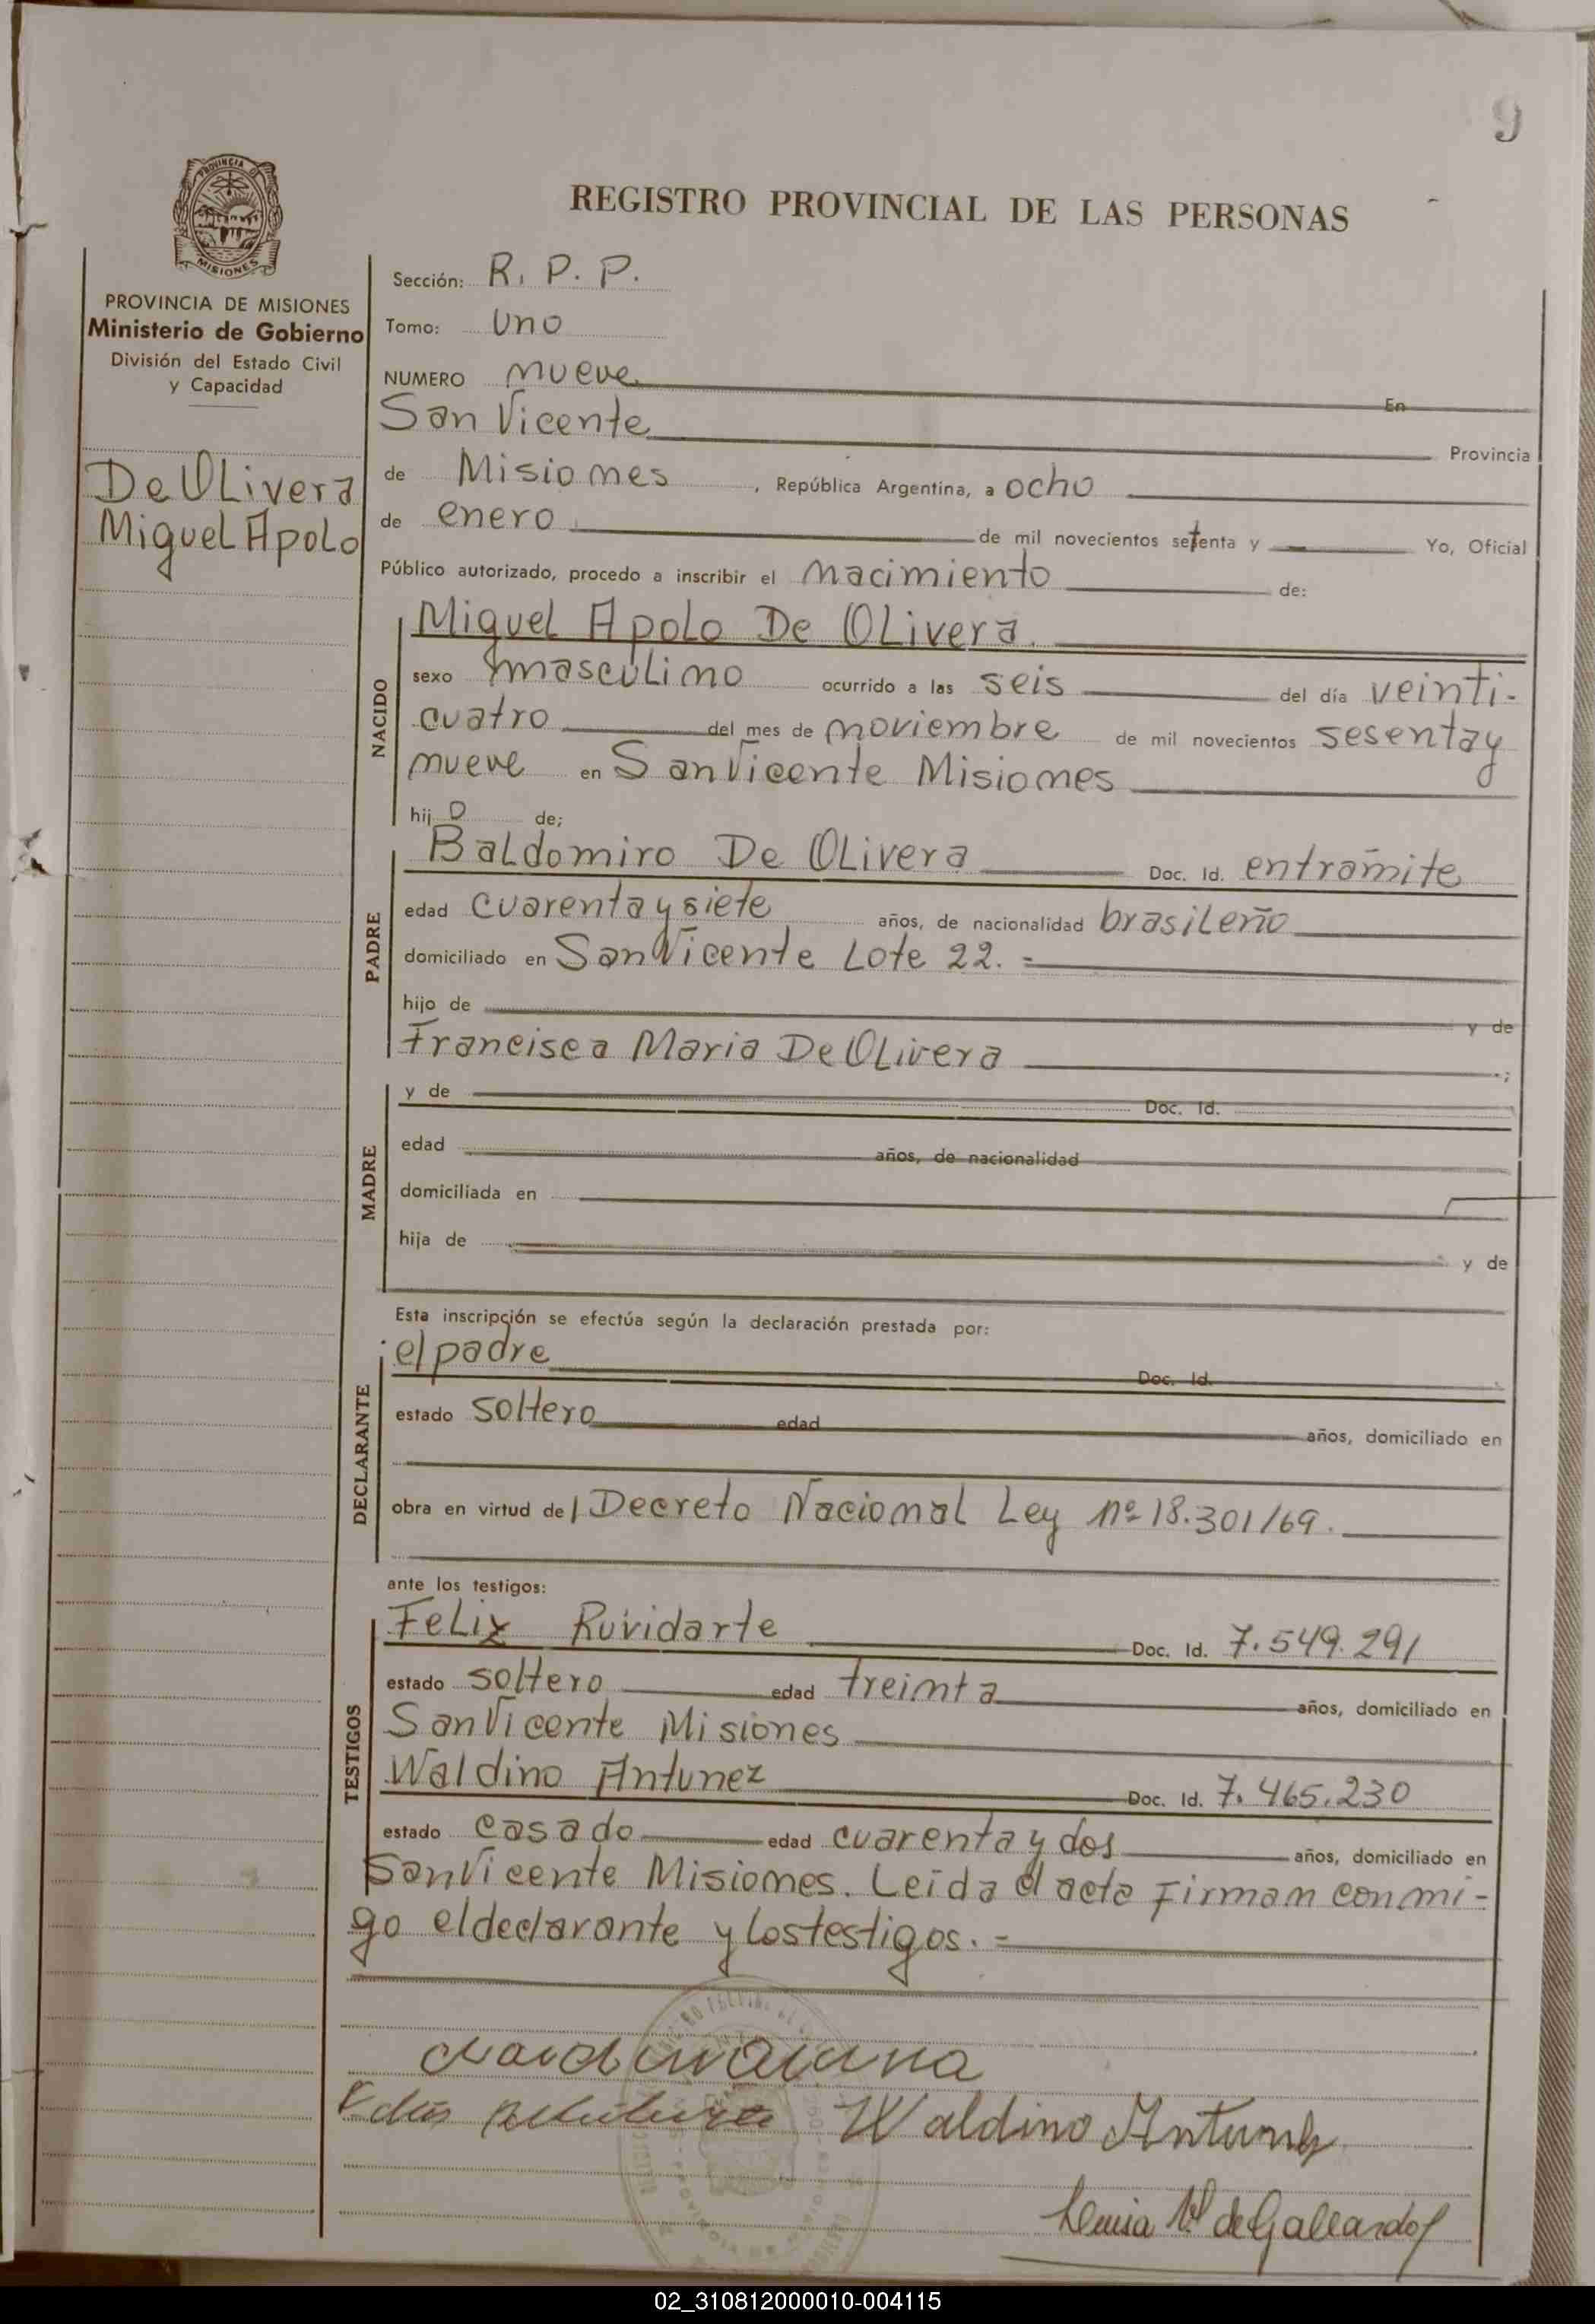 9
PROVINCIA
MISIONES
REGISTRO PROVINCIAL DE LAS PERSONAS
PROVINCIA DE MISIONES
Ministerio de Gobierno
División del Estado Civil
y Capacidad
De OLivera
Miguel Apolo
Sección: R. P. P.
Tomo: Uno
NUMERO nueve En
San Vicente Provincia
de Misiones, República Argentina, a ocho
de enero de mil novecientos setenta y Yo, Oficial
Público autorizado, procedo a inscribir el nacimiento de:
NACIDO
Miguel Apolo De OLivera.
sexo masculino ocurrido a las seis del día veinti-
cuatro del mes de noviembre de mil novecientos sesenta y
nueve en San Vicente Misiones
hij o de;
PADRE
Baldomiro De OLivera Doc. Id. en tramite
edad cuarenta y siete años, de nacionalidad brasileño
domiciliado en San Vicente Lote 22. =
hijo de y de
Francisca Maria De OLivera ;
MADRE
y de Doc. Id.
edad años, de nacionalidad
domiciliada en
hija de y de
Esta inscripción se efectúa según la declaración prestada por:
DECLARANTE
el padre Doc. Id.
estado soltero edad años, domiciliado en
obra en virtud del Decreto Nacional Ley nº 18.301/69.
ante los testigos:
TESTIGOS
Felix Ruvidarte Doc. Id. 7.549.291
estado soltero edad treinta años, domiciliado en
San Vicente Misiones
Waldino Antunez Doc. Id. 7.465.230
estado casado edad cuarenta y dos años, domiciliado en
San Vicente Misiones. Leída el acta firman conmi-
go el declarante y los testigos. =
Waldino Antunez
de Gallardo
02_310812000010-004115